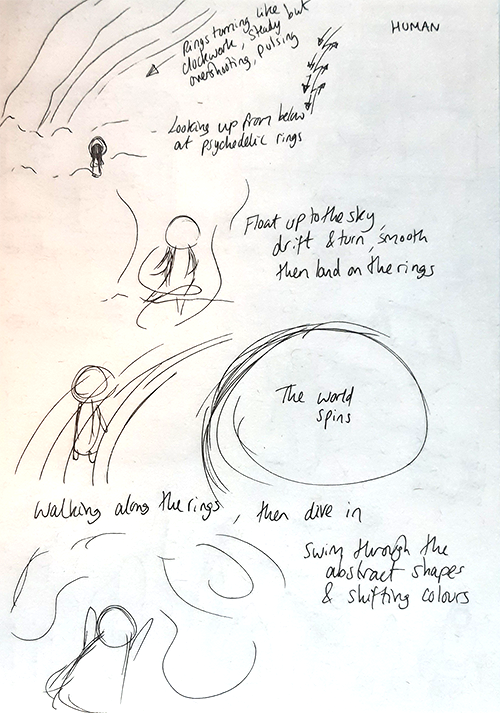 Rings turning like but
clockwork, steady
overshooting, pulsing
HUMAN
Looking up from below
at psychedelic rings
Float up to the sky,
drift & turn, smooth
then land on the rings
The world
spins
Walking along the rings, then dive in
Swim through the
abstract shapes
& shifting colours